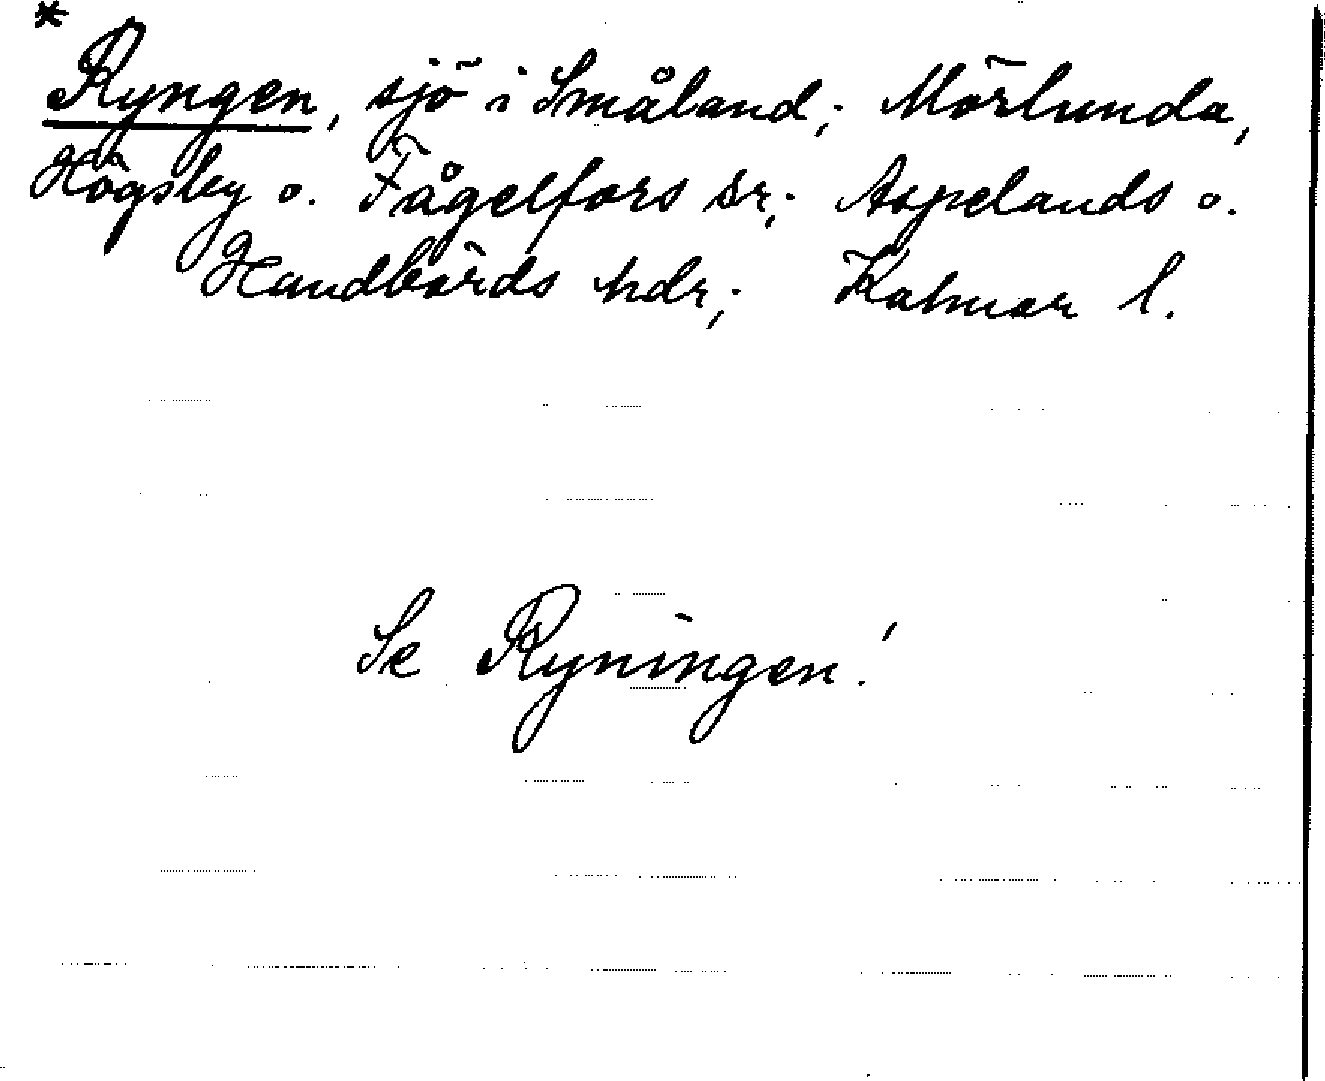 *
Ryngen, sjö i Småland; Mörlunda,
Högsby o. Fågelfors sr; Aspelands o.
Handbörds hdr; Kalmar l.
Se Ryningen!